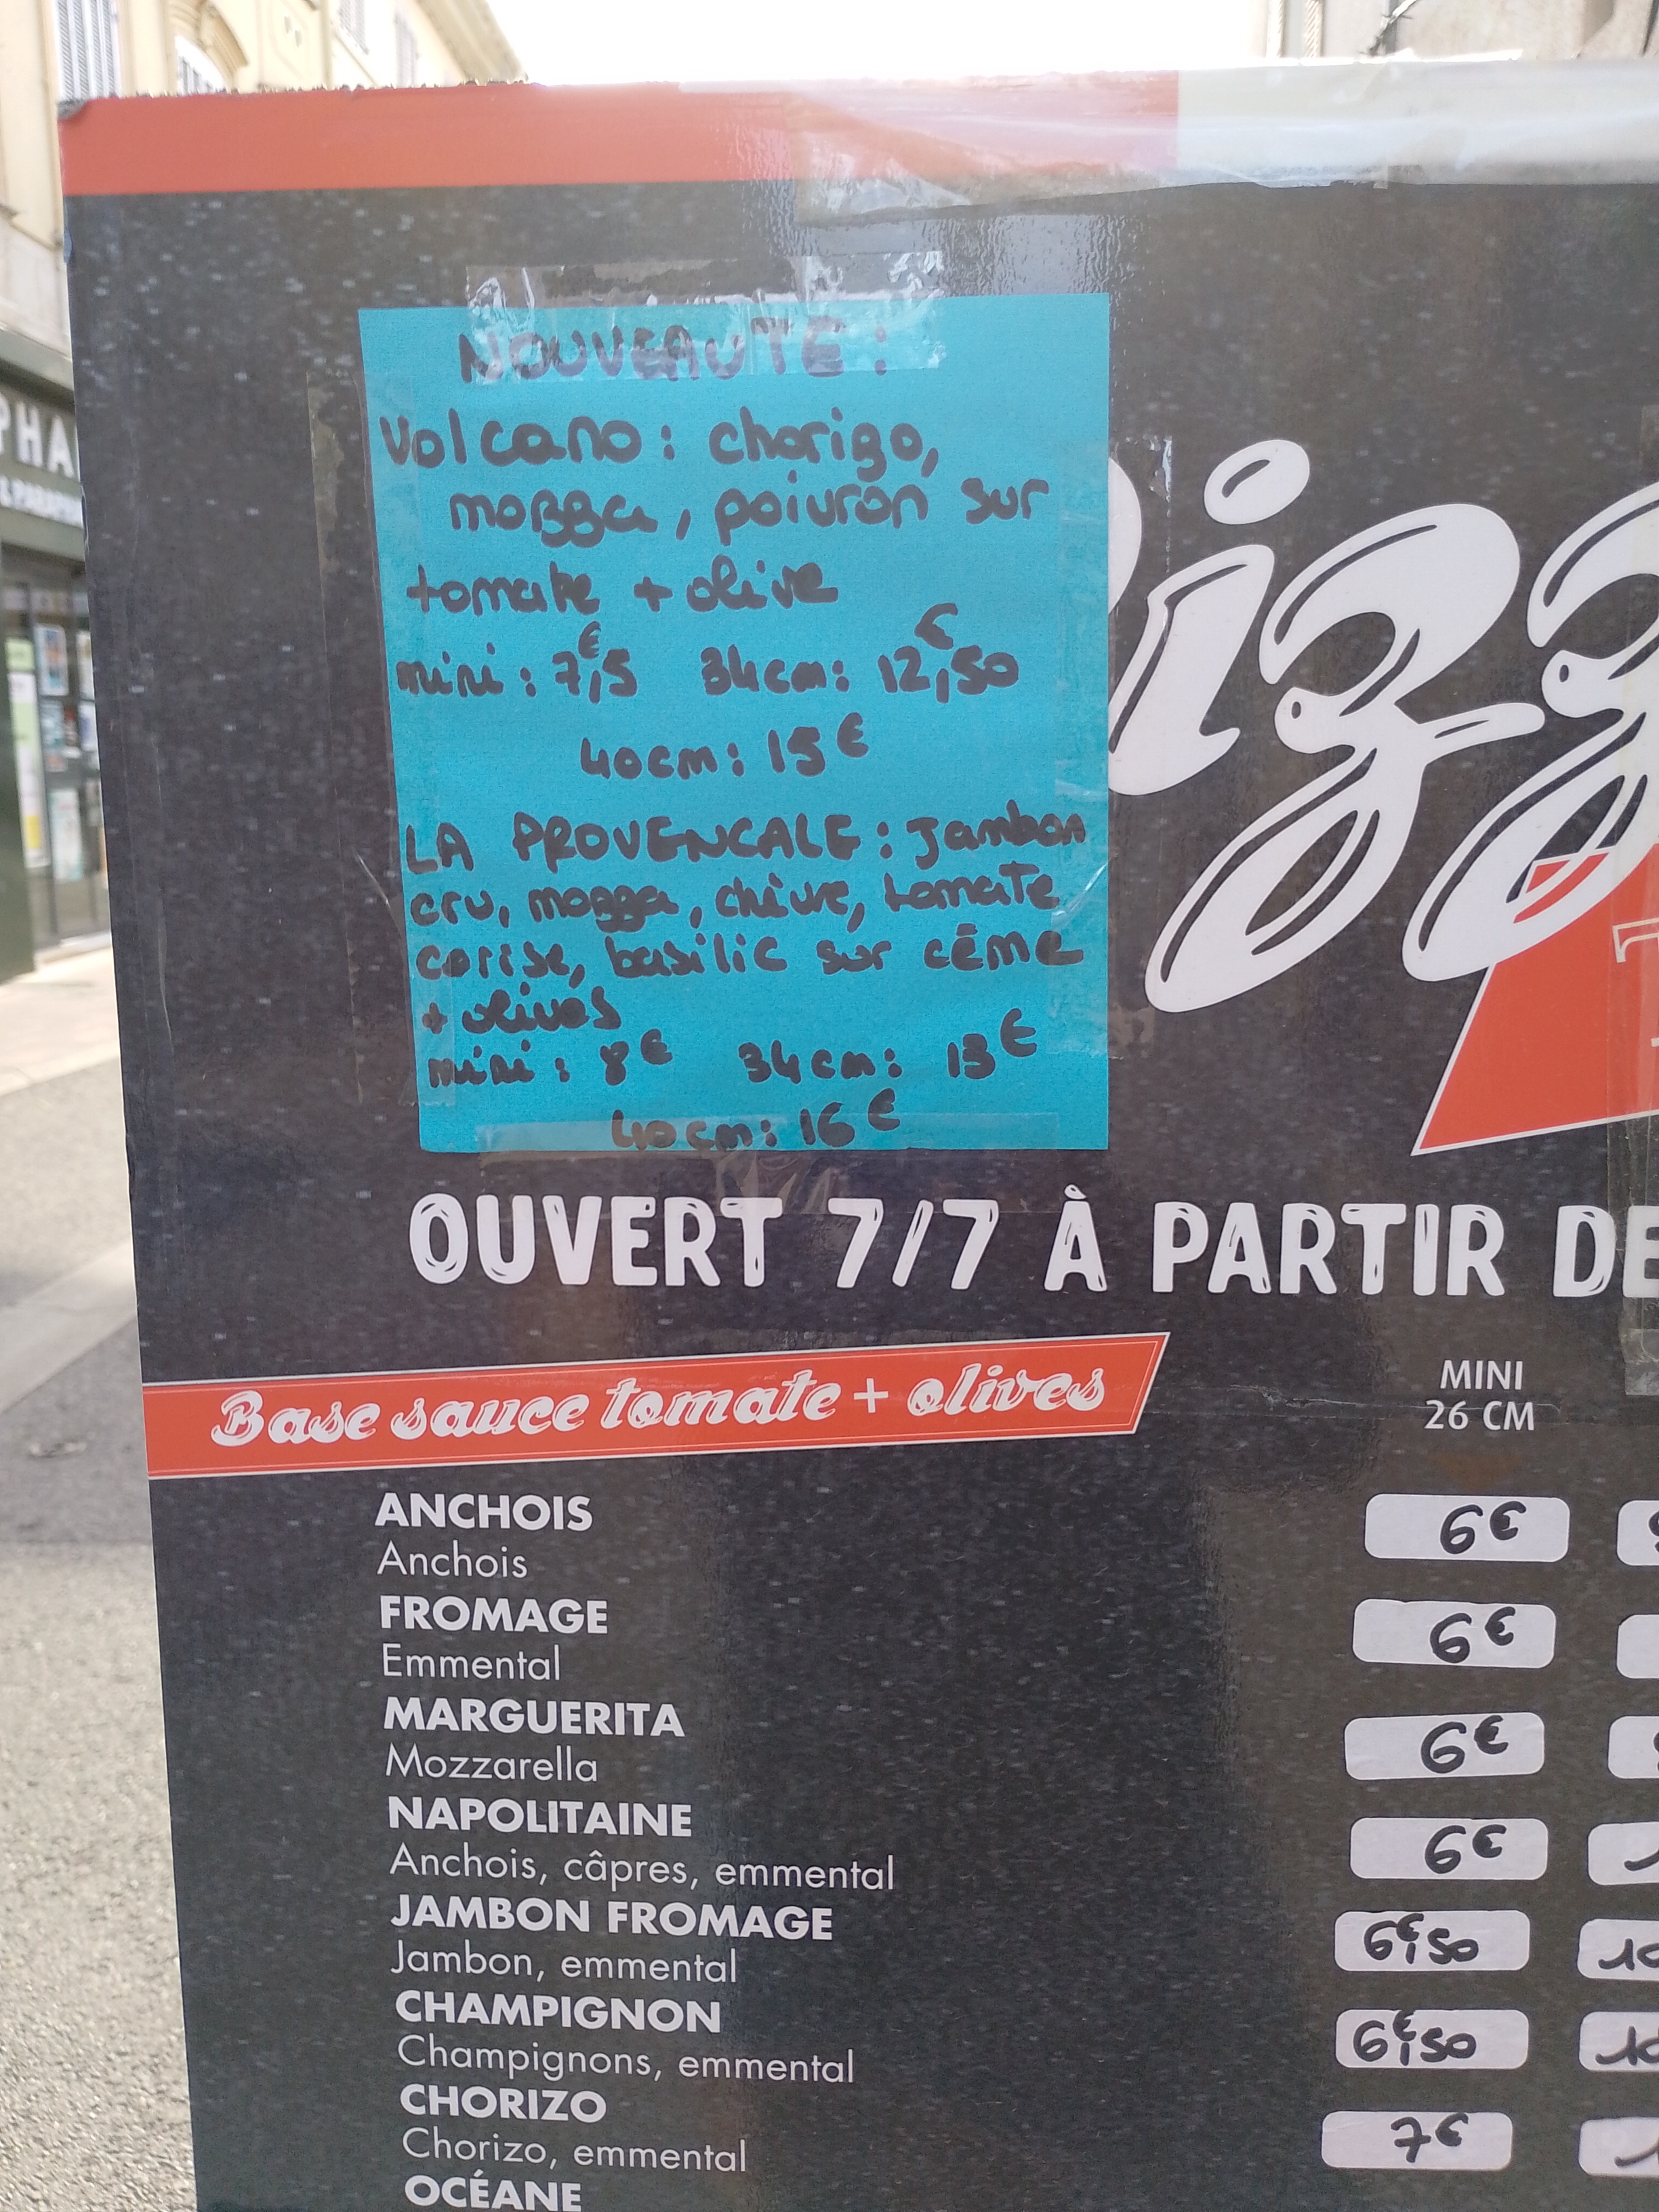 PHA
NOUVEAUTE :
Volcano : chorizo,
mozza, poivron sur
tomate + olive
mini : 7€,5 34cm : 12€,50
40cm : 15€
LA PROVENCALE : Jambon
cru, mozza, chèvre, tomate
cerise, basilic sur cème
+ olives
mini : 8€ 34cm : 13€
40cm : 16€
OUVERT 7/7 À PARTIR DE
Base sauce tomate + olives
MINI
26 CM
ANCHOIS 6€
Anchois
FROMAGE 6€
Emmental
MARGUERITA 6€
Mozzarella
NAPOLITAINE 6€
Anchois, câpres, emmental
JAMBON FROMAGE 6€,50 10
Jambon, emmental
CHAMPIGNON 6€,50 10
Champignons, emmental
CHORIZO 7€
Chorizo, emmental
OCÉANE